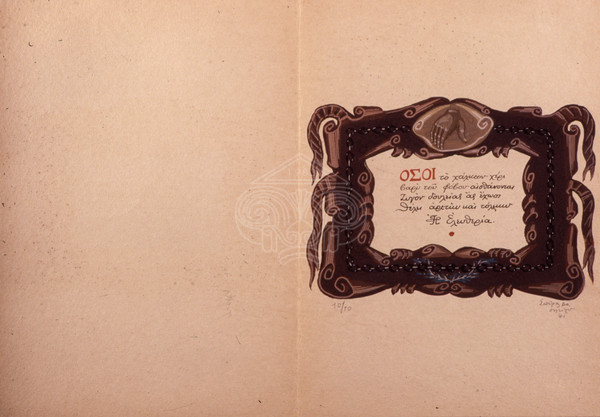 ΟΣΟΙ τὸ χάλκεον χέρι
βαρὺ τοῦ φόβου αἰσθάνονται
Ζυγὸν δουλείας ἂς ἔχωσι
Θέλει ἀρετὴν καὶ τόλμην
Ἡ Ἐλευθερία.
10/10